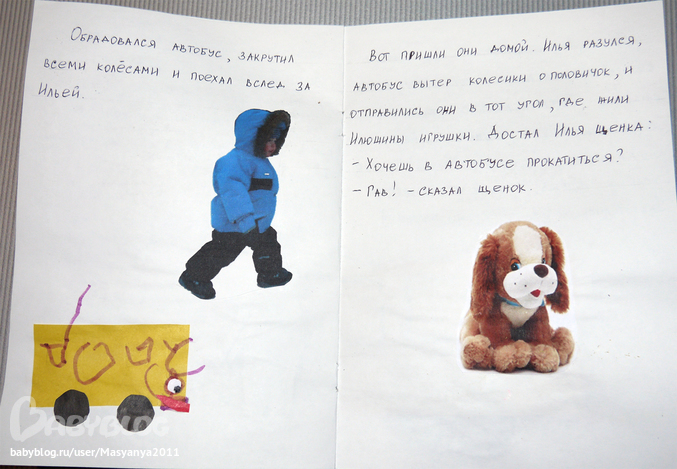 Обрадовался автобус, закрутил
всеми колёсами и поехал вслед за
Ильей.
Вот пришли они домой. Илья разулся,
автобус вытер колесики о половичок, и
отправились они в тот угол, где жили
Илюшины игрушки. Достал Илья щенка:
- Хочешь в автобусе прокатиться?
- Гав! - сказал щенок.
BABYBLOG
babyblog.ru/user/Masyanya2011